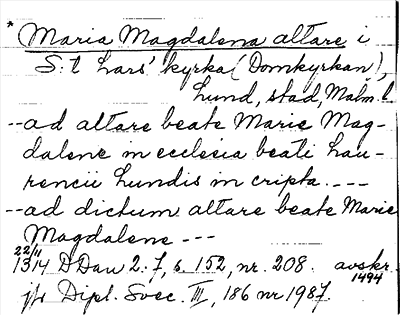 * Maria Magdalena altare i
S:t Lars' kyrka (Domkyrkan),
Lund, stad, Malm. l.
--ad altare beate Marie Mag-
dalene in ecclesia beati Lau-
rencii Lundis in cripta.---
--ad dictum altare beate Marie
Magdalene ---
22/11
1314 D Dan 2.7, s. 152, nr. 208. avskr.
1494
jfr Dipl. Svec. III, 186 nr 1987.